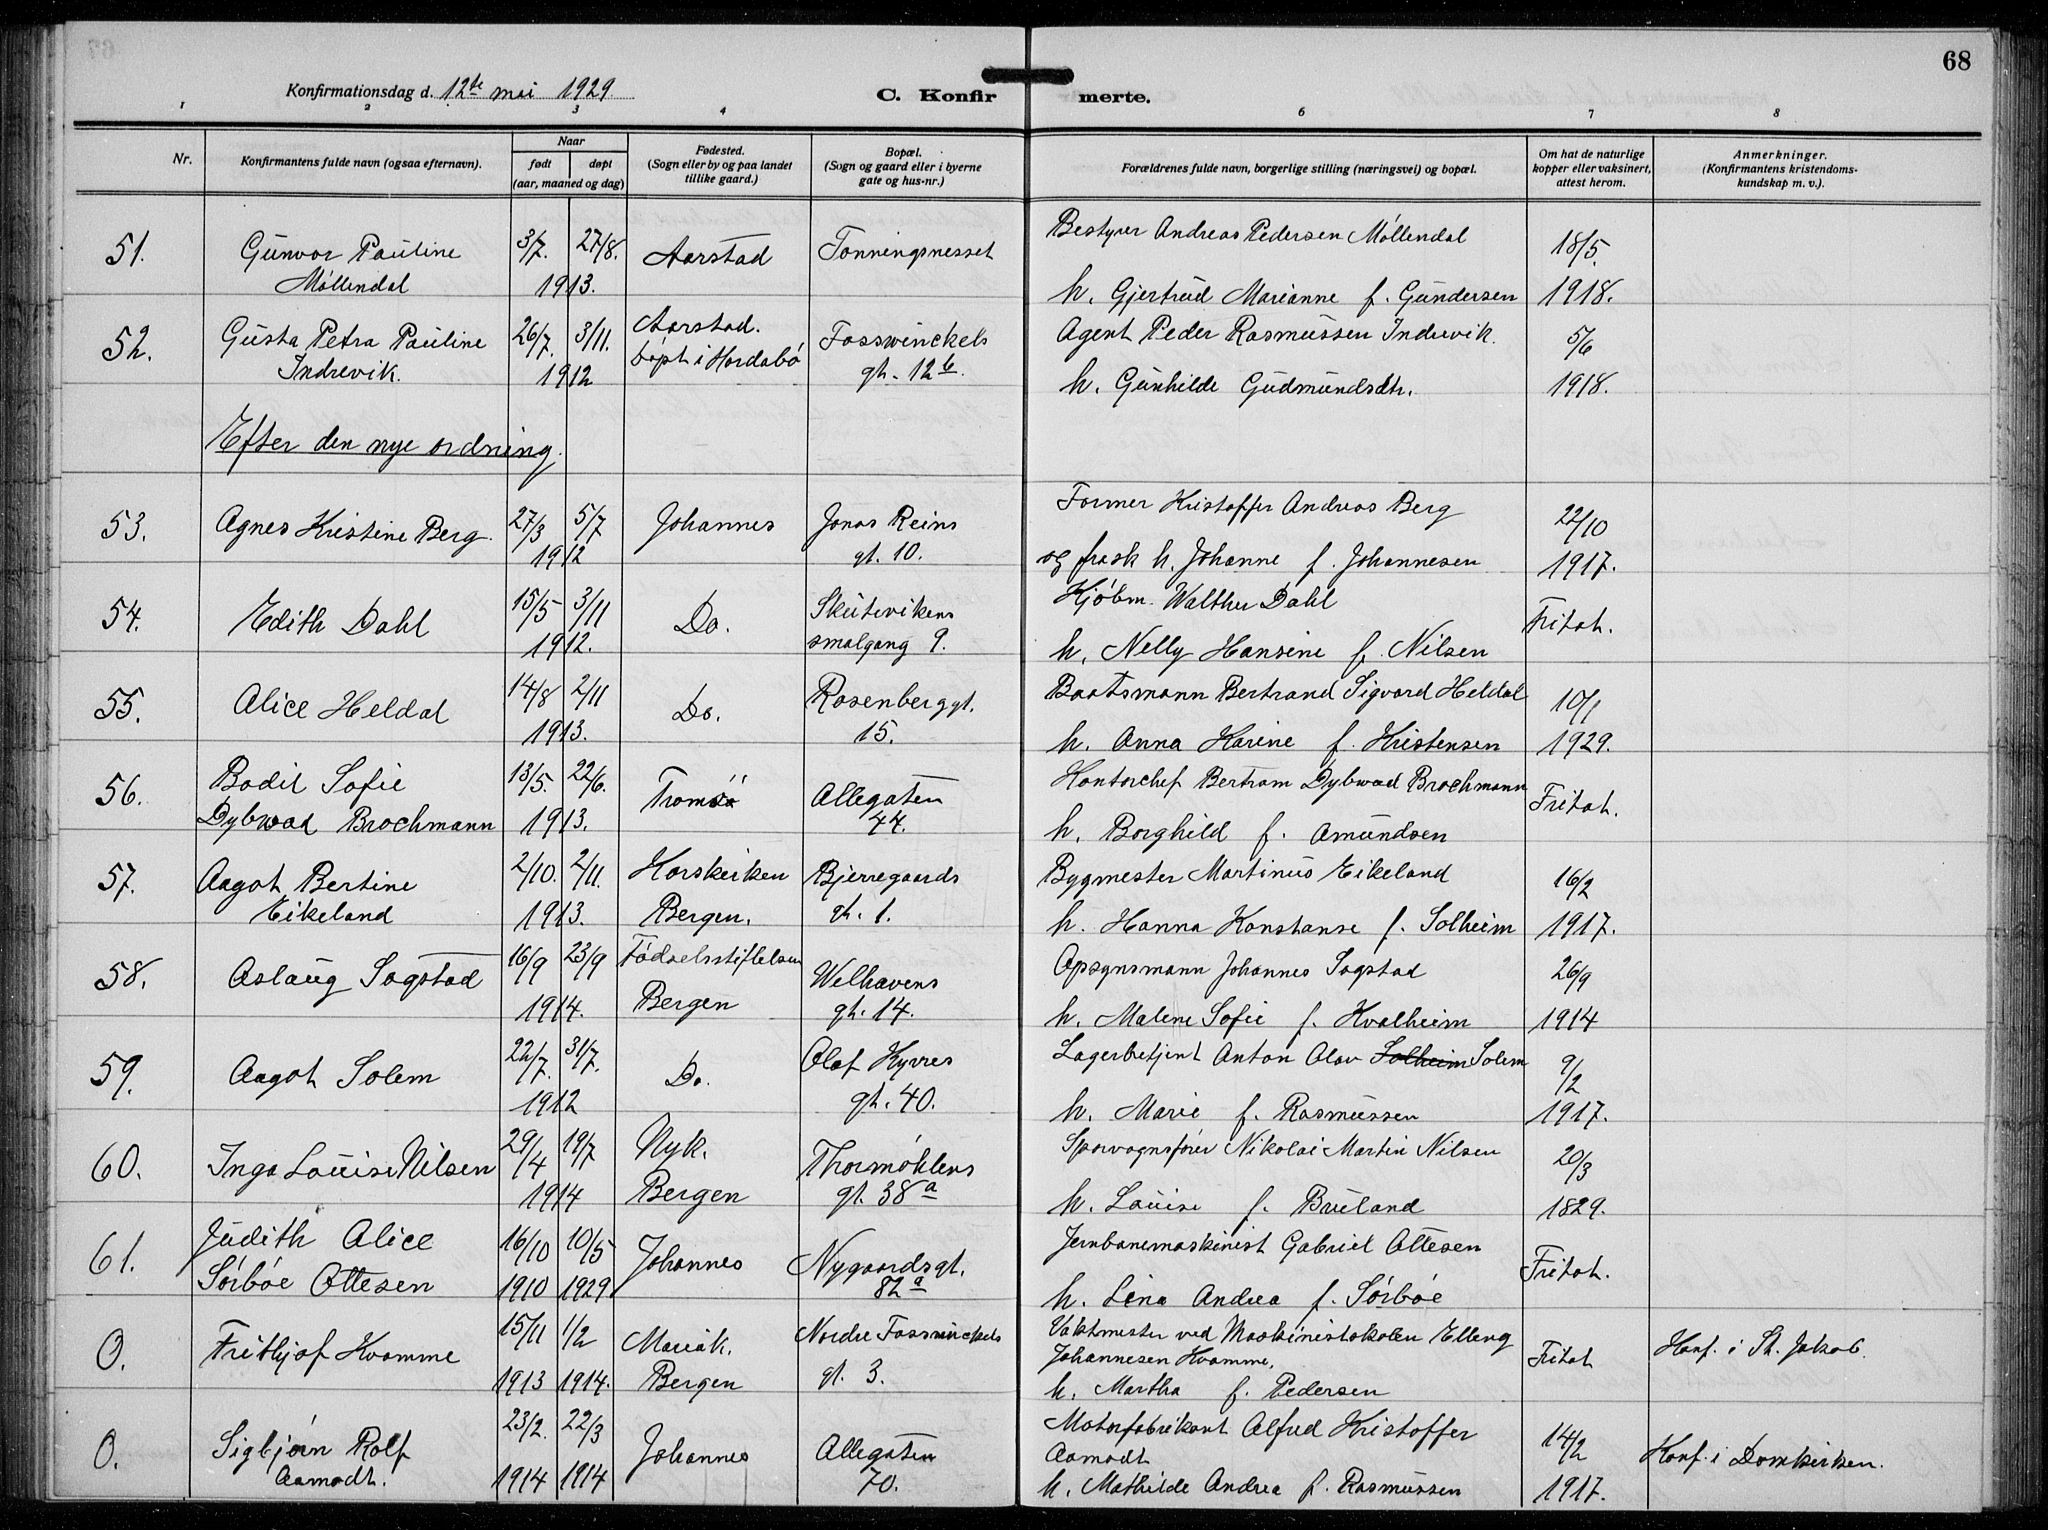 68
Konfirmationsdag d. 12te mai 1929.
C. Konfirmerte.
1 2 3 4 5 6 7 8
Nr. | Konfirmantens fulde navn (ogsaa efternavn). | Naar født døpt (aar, maaned og dag) | Fødested. (Sogn eller by og paa landet tillike gaard.) | Bopæl. (Sogn og gaard eller i byerne gate og hus-nr.) | Forældrenes fulde navn, borgerlige stilling (næringsvei) og bopæl. | Om hat de naturlige kopper eller vaksinert, attest herom. | Anmerkninger. (Konfirmantens kristendomskundskap m. v.).
51. Gunvor Pauline 3/7. 27/8. Aarstad Tonningsnesset Bestyrer Andreas Pedersen Møllendal 18/5.
Møllendal 1913. h. Gjertrud Marianne f. Gundersen 1918.
52. Gusta Petra Pauline 26/7. 3/11. Aarstad. Fosswinckels Agent Peder Rasmussen Indrevik. 5/6
Indrevik. 1912 døpt i Hordabø gt. 12b. h. Gunhilde Gudmundsdtr. 1918.
Efter den nye ordning.
53. Agnes Kristine Berg. 27/3 5/7 Johannes Jonas Reins Former Kristoffer Andreas Berg 22/10
1912 gt. 10. og frask h. Johanne f. Johannesen 1917.
54. Edith Dahl 15/5 3/11 Do. Skutevikens Kjøbm. Walther Dahl Fritat.
1912. smalgang 9. h. Nelly Hansine f. Nilsen
55. Alice Heldal 14/8 2/11 Do. Rosenberggt. Baatsmann Bertrand Sigvard Heldal 10/1
1913. 15. h. Anna Karine f. Kristensen 1929.
56. Bodil Sofie 13/5. 22/6. Tromsø Allegaten Kontorchef Bertram Dybwad Brochmann Fritat.
Dybwad Brochmann 1913. 44. h. Borghild f. Amundsen
57. Aagot Bertine 2/10. 2/11. Korskirken Bjerregaards Bygmester Martinus Eikeland 16/2
Eikeland 1913. Bergen. gt. 1. h. Hanna Konstanse f. Solheim 1917.
58. Aslaug Sagstad 16/9 23/9 Fødselsstiftelsen Welhavens Opsynsmann Johannes Sagstad 26/9
1914. Bergen gt. 14. h. Malene Sofie f. Kvalheim 1914
59. Aagot Solem 22/7. 31/7. Do. Olaf Kyrres Lagerbetjent Anton Olav Solheim Solem 9/2
1912 gt. 40. h. Marie f. Rasmussen 1917.
60. Inga Louise Nilsen 29/4 19/7 Nyk. Thormøhlens Sporvognsfører Nikolai Martin Nilsen 20/3
1914 Bergen gt. 38a h. Louise f. Bueland 1829.
61. Judith Alice 16/10 10/5 Johannes Nygaardsgt. Jernbanemaskinist Gabriel Ottesen Fritat.
Sørbøe Ottesen 1910 1929 82a h. Lina Andrea f. Sørbøe
0. Frithjof Kvamme 15/11 1/2 Mariak. Nordre Fosswinckels Vaktmester ved Maskinistskolen Elling Johannesen Kvamme, Fritat Konf. i St. Jakob.
1913 1914. Bergen gt. 3. h. Martha f. Pedersen
0. Sigbjørn Rolf 23/2. 22/3 Johannes Allegaten Motorfabrikant Alfred Kristoffer Aamodt 14/2 Konf. i Domkirken.
Aamodt. 1914 1914 70. h. Mathilde Andrea f. Rasmussen 1917.